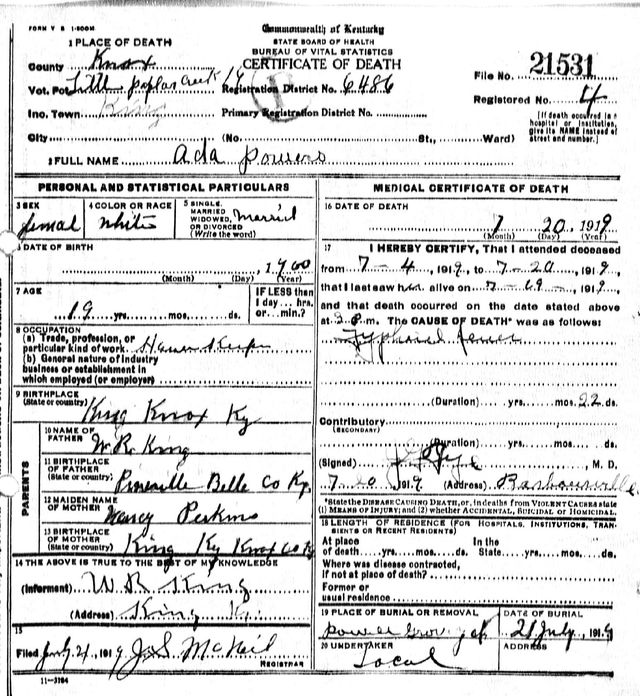 FORM V S 1-500M
Commonwealth of Kentucky
STATE BOARD OF HEALTH
BUREAU OF VITAL STATISTICS
CERTIFICATE OF DEATH
1 PLACE OF DEATH
County Knox
Vot. Pct Little poplar Creek 14
Registration District No. 6486
File No. 21531
Inc. Town King
Primary Registration District No.
Registered No. 4
[If death occurred in a hospital or institution, give its NAME instead of street and number.]
City (No. St., Ward)
2 FULL NAME Ada powers
PERSONAL AND STATISTICAL PARTICULARS
3 SEX femal
4 COLOR OR RACE White
5 SINGLE, MARRIED WIDOWED, OR DIVORCED (Write the word) Married
6 DATE OF BIRTH
, 1900
(Month) (Day) (Year)
7 AGE
19 yrs. mos. ds.
IF LESS than 1 day... hrs. or... min.?
8 OCCUPATION
(a) Trade, profession, or particular kind of work
(b) General nature of industry business or establishment in which employed (or employer)
9 BIRTHPLACE
(State or country) King Knox Ky
PARENTS
10 NAME OF FATHER W. R. King
11 BIRTHPLACE OF FATHER (State or country) Pineville Belle Co Ky
12 MAIDEN NAME OF MOTHER Nancy Perkins
13 BIRTHPLACE OF MOTHER (State or country) King Ky Knox Co Ky
14 THE ABOVE IS TRUE TO THE BEST OF MY KNOWLEDGE
(Informant) W R King
(Address) King Ky
15
Filed July 21, 1919 J.S. McNeil
REGISTRAR
11-3184
MEDICAL CERTIFICATE OF DEATH
16 DATE OF DEATH
7 20 1919
(Month) (Day) (Year)
17 I HEREBY CERTIFY, That I attended deceased
from 7-4, 1919, to 7-20, 1919,
that I last saw her alive on 7-19-, 1919,
and that death occurred on the date stated above
at m. The CAUSE OF DEATH* was as follows:
Typhoid fever
(Duration) yrs. mos. 22 ds.
Contributory
(SECONDARY)
(Duration) yrs. mos. ds.
(Signed) M. D.
7-20 1919 (Address) Barbourville
*State the DISEASE CAUSING DEATH, or, in deaths from VIOLENT CAUSES state (1) MEANS OF INJURY; and (2) whether ACCIDENTAL, SUICIDAL or HOMICIDAL.
18 LENGTH OF RESIDENCE (FOR HOSPITALS, INSTITUTIONS, TRANSIENTS OR RECENT RESIDENTS)
At place of death yrs. mos. ds. In the State yrs. mos. ds.
Where was disease contracted, if not at place of death?
Former or usual residence
19 PLACE OF BURIAL OR REMOVAL
DATE OF BURIAL
21 July, 1919
20 UNDERTAKER
Local
ADDRESS